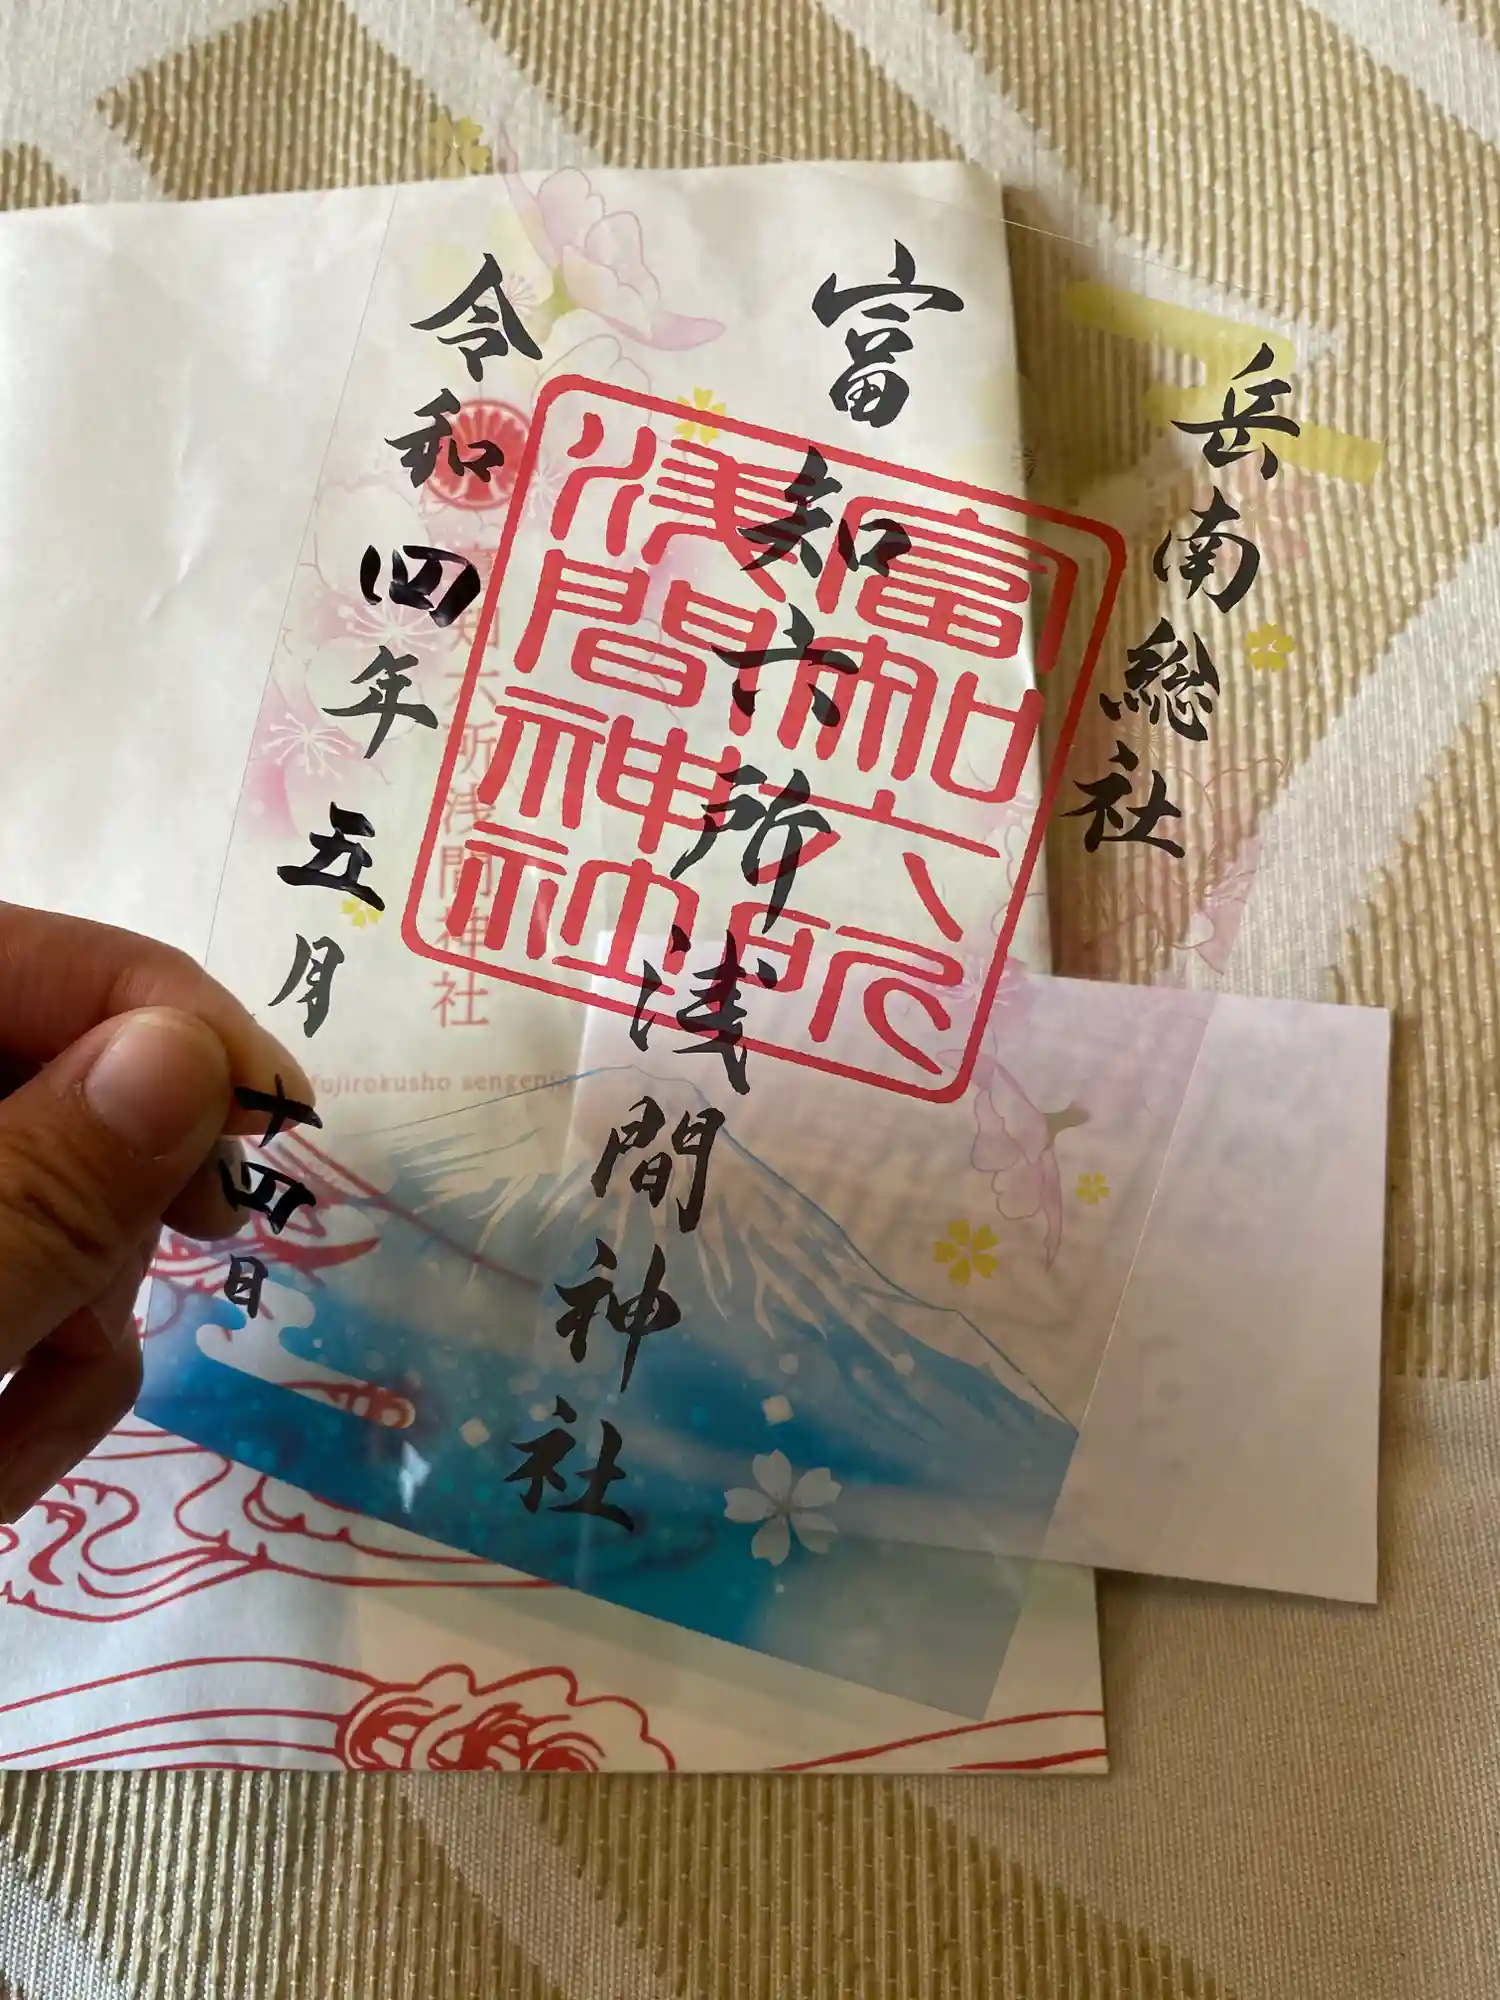 岳南総社
富知六所浅間神社
令和四年五月十四日
富知六所
浅間神社
知六所浅間神社
fujirokusho sengenji